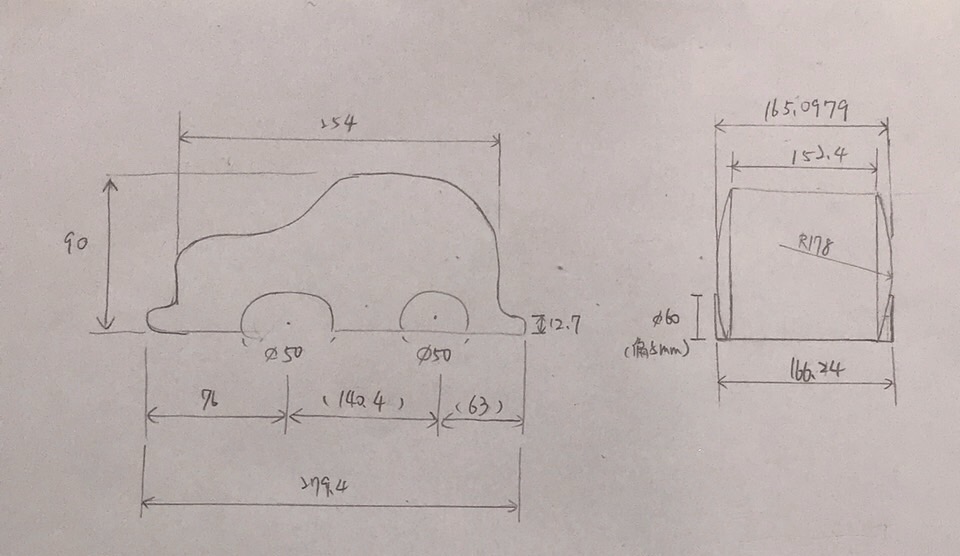 254
90
12.7
ø50
ø50
76
(140.4)
(63)
279.4
165.0979
152.4
R178
ø60
(偏5mm)
166.24